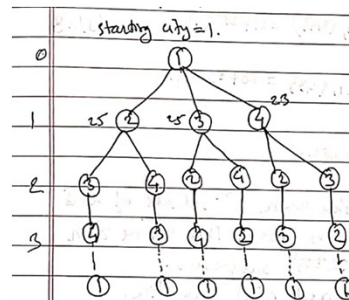 starting city = 1.
0 1
25 25 23
1 2 3 4
2 3 4 2 4 2 3
3 4 3 4 2 3 2
1 1 1 1 1 1